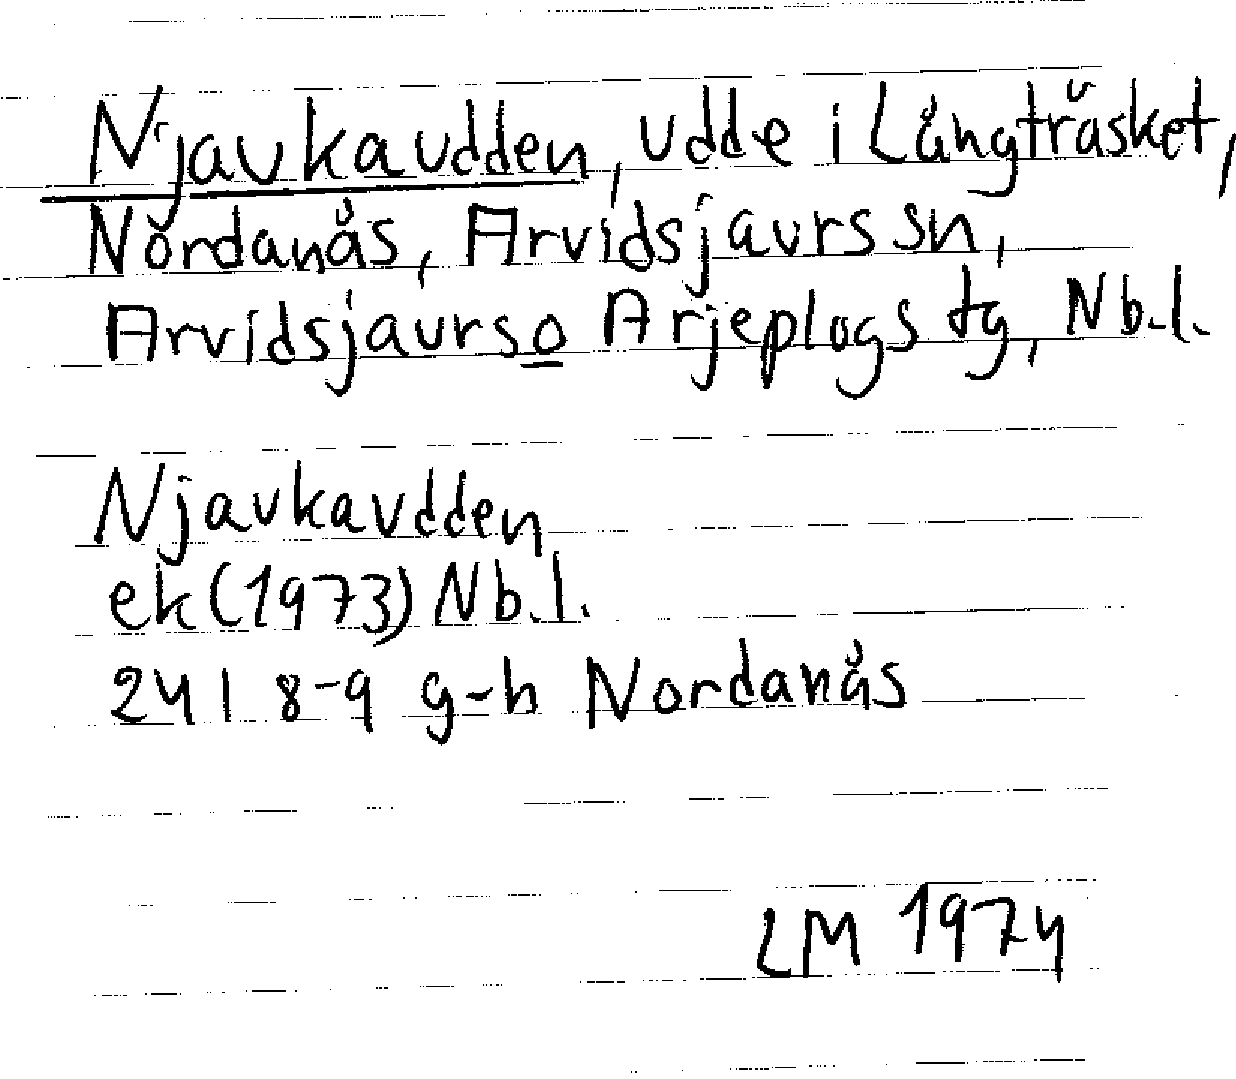 Njavkaudden, udde i Långträsket,
Nordanås, Arvidsjaurs sn,
Arvidsjaurs o Arjeplogs tg, Nb.l.
Njavkaudden
ek (1973) Nb.l.
24 I 8-9 g-h Nordanås
LM 1974